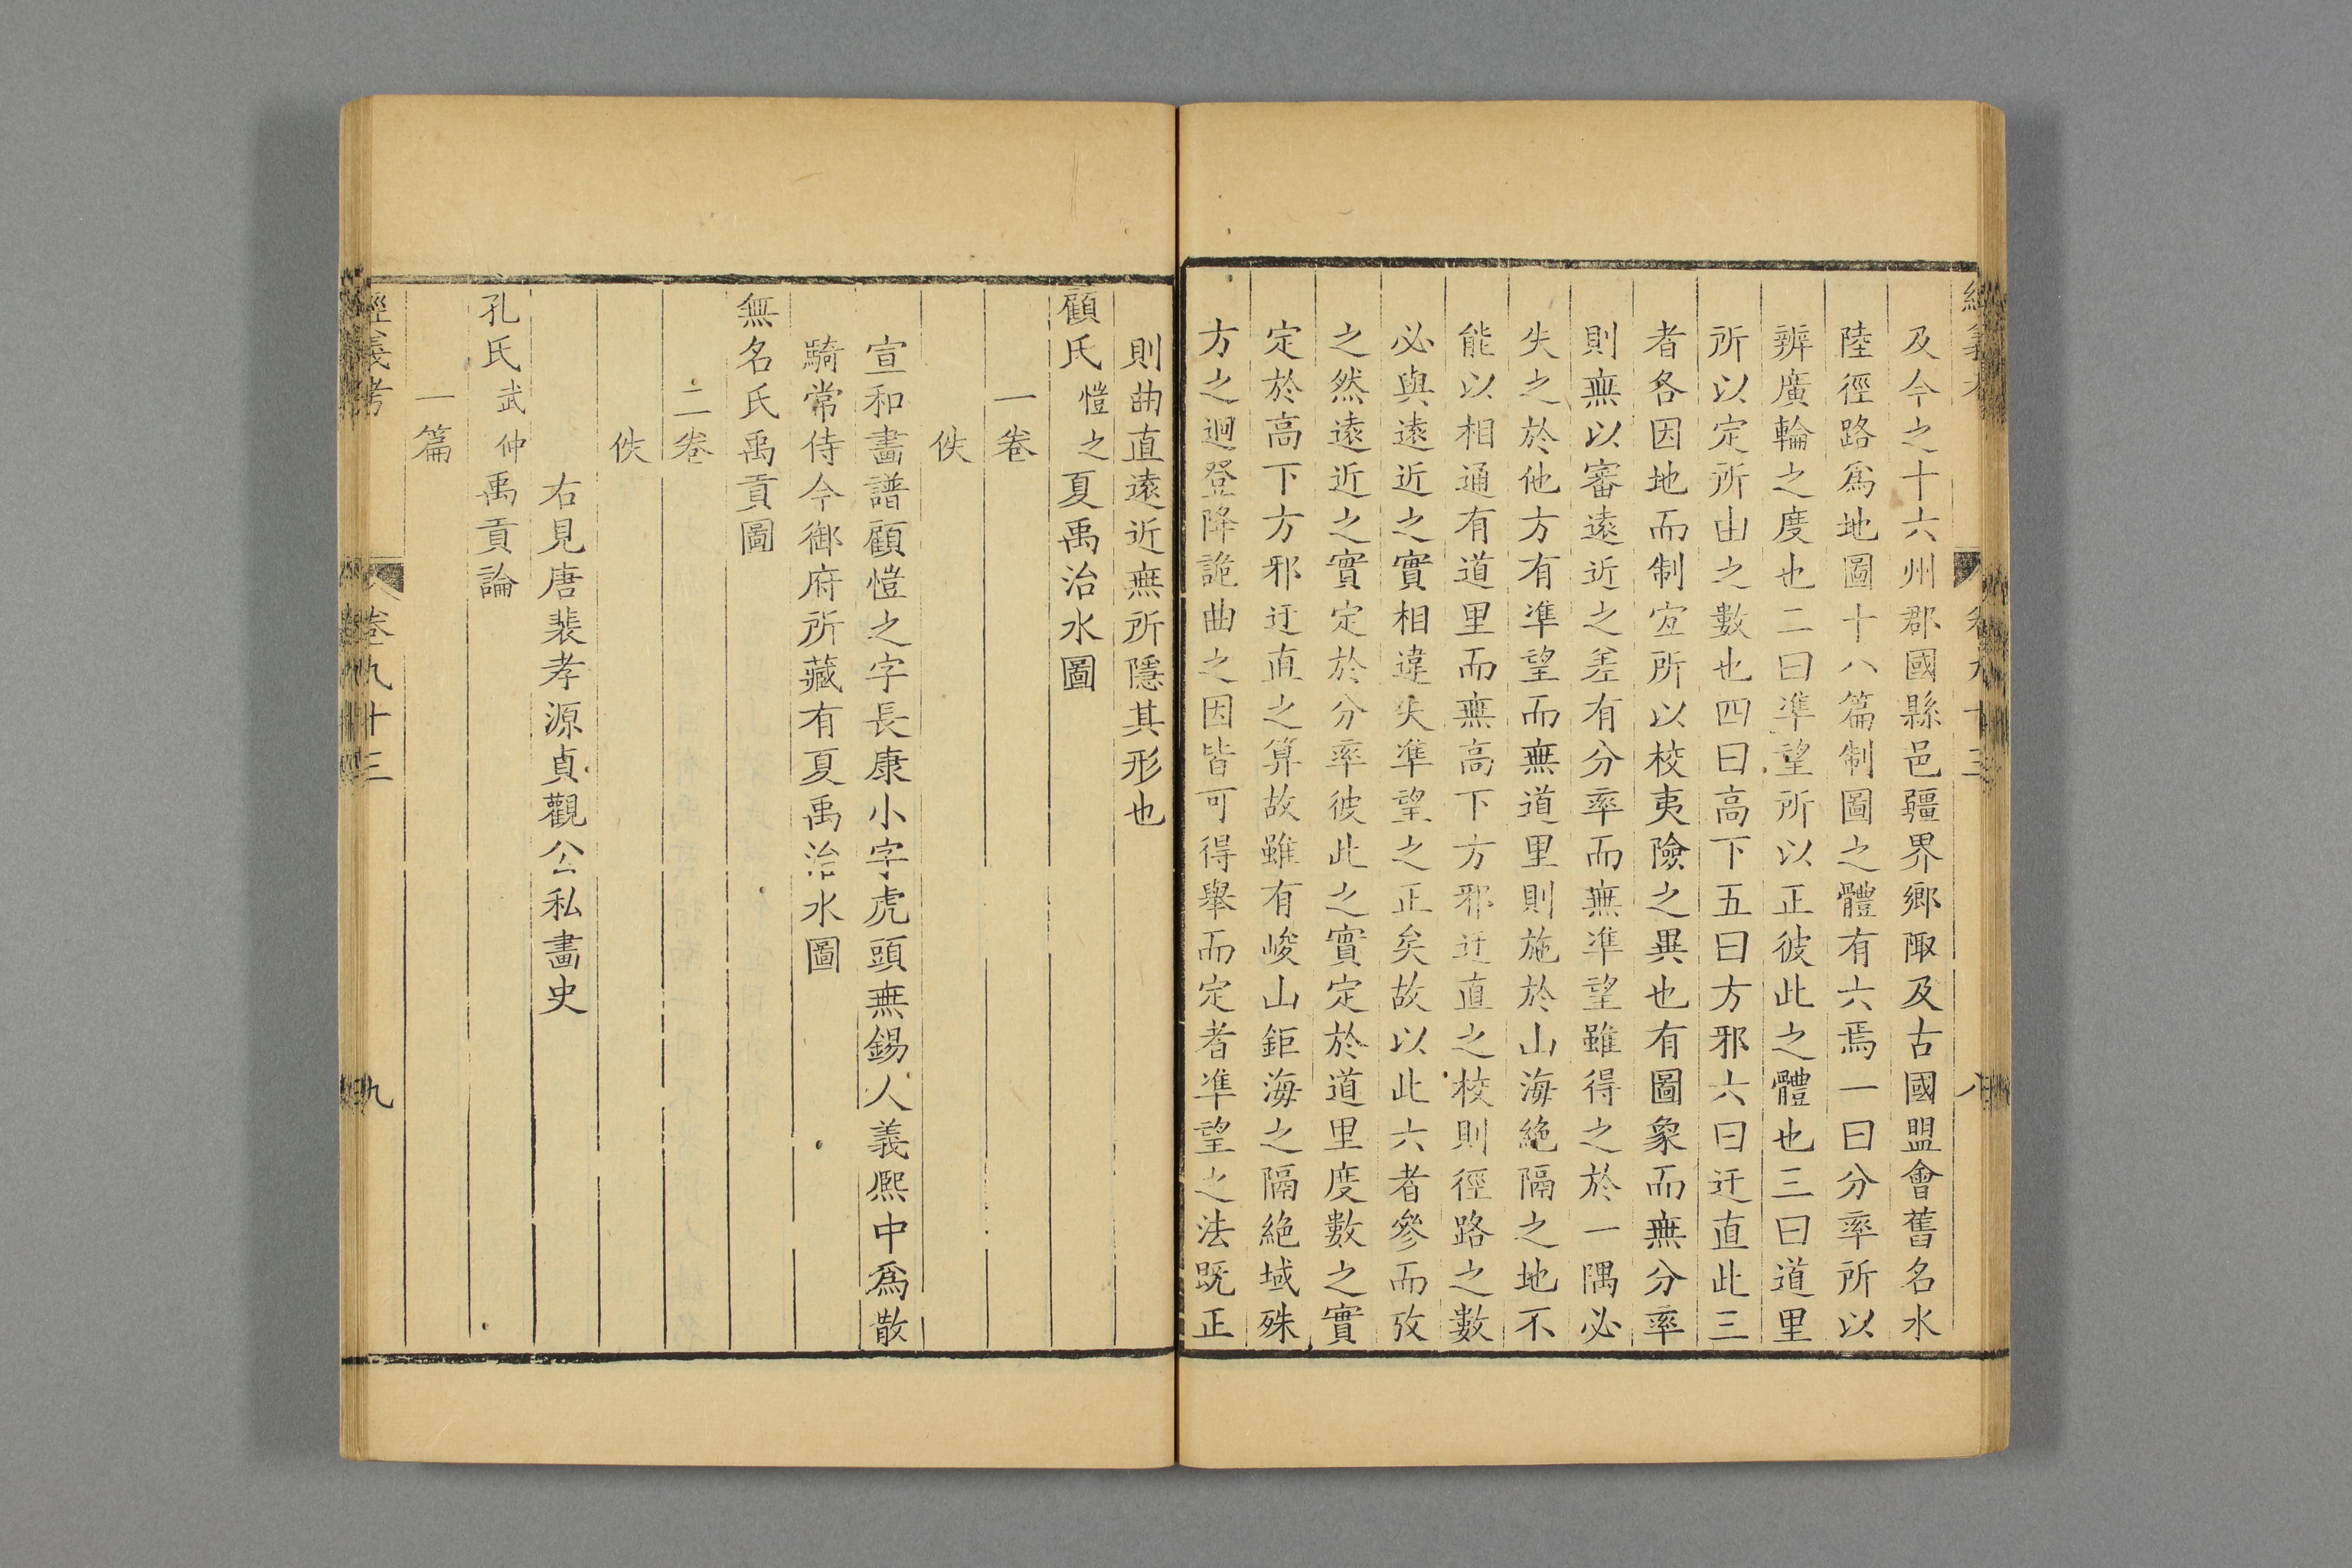 及今之十六州郡國縣邑疆界鄉陬及古國盟會舊名水
陸徑路爲地圖十八篇制圖之體有六焉一曰分率所以
辨廣輪之度也二曰準望所以正彼此之體也三曰道里
所以定所由之數也四曰高下五曰方邪六曰迂直此三
者各因地而制宜所以校夷險之異也有圖象而無分率
則無以審遠近之差有分率而無準望雖得之於一隅必
失之於他方有準望而無道里則施於山海絶隔之地不
能以相通有道里而無高下方邪迂直之校則徑路之數
必與遠近之實相違失準望之正矣故以此六者參而攷
之然遠近之實定於分率彼此之實定於道里度數之實
定於高下方邪迂直之算故雖有峻山鉅海之隔絶域殊
方之迥登降詭曲之因皆可得舉而定者準望之法既正
則曲直遠近無所隱其形也
顧氏愷之夏禹治水圖
一卷
佚
宣和畫譜顧愷之字長康小字虎頭無錫人義熙中爲散
騎常侍今御府所藏有夏禹治水圖
無名氏禹貢圖
二卷
佚
右見唐裴孝源貞觀公私畫史
孔氏武仲禹貢論
一篇
經義考 卷九十三 九